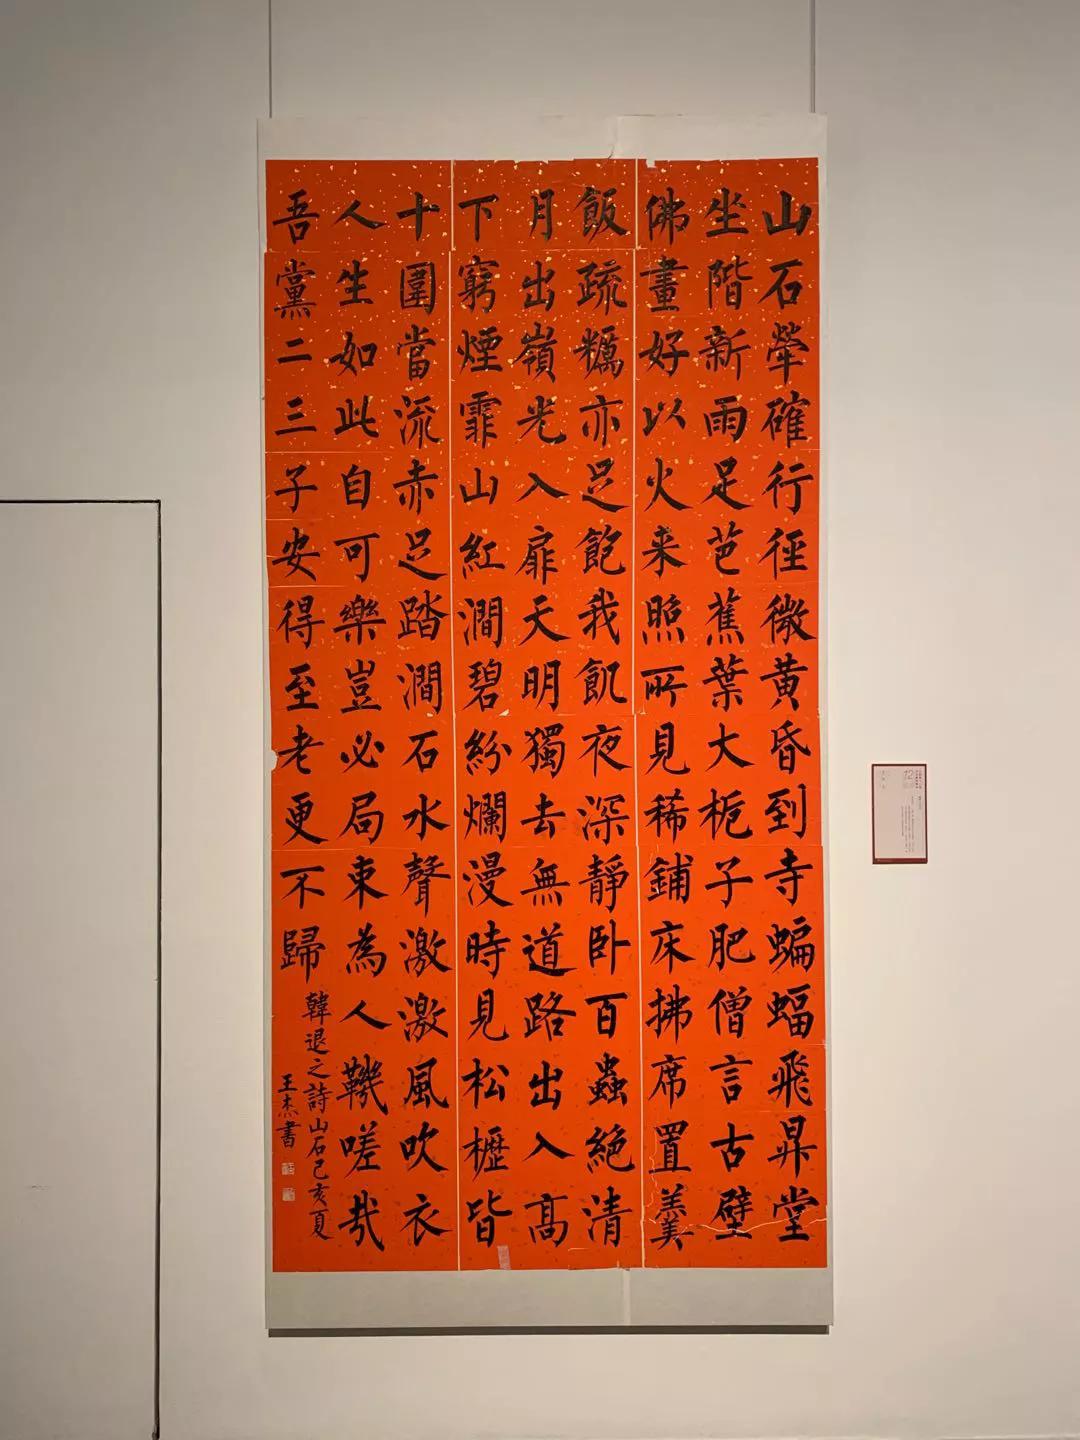 山石犖確行徑微黄昏到寺蝙蝠飛昇堂
坐階新雨足芭蕉葉大梔子肥僧言古壁
佛畫好以火来照所見稀鋪床拂席置羹
飯疏糲亦足飽我飢夜深靜卧百蟲絕清
月出嶺光入扉天明獨去無道路出入高
下窮煙霏山紅澗碧紛爛漫時見松櫪皆
十圍當流赤足踏澗石水聲激激風吹衣
人生如此自可樂豈必局束為人鞿嗟哉
吾黨二三子安得至老更不歸
韓退之詩山石己亥夏
王杰書
12